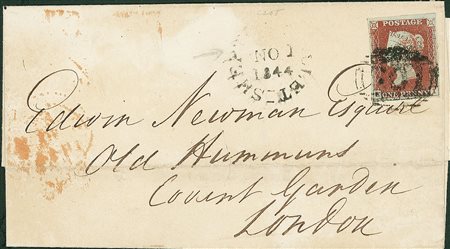 POSTAGE
NO 1
1844
ONE PENNY
Edwin Newman Esquire
Old Hummums
Covent Garden
London